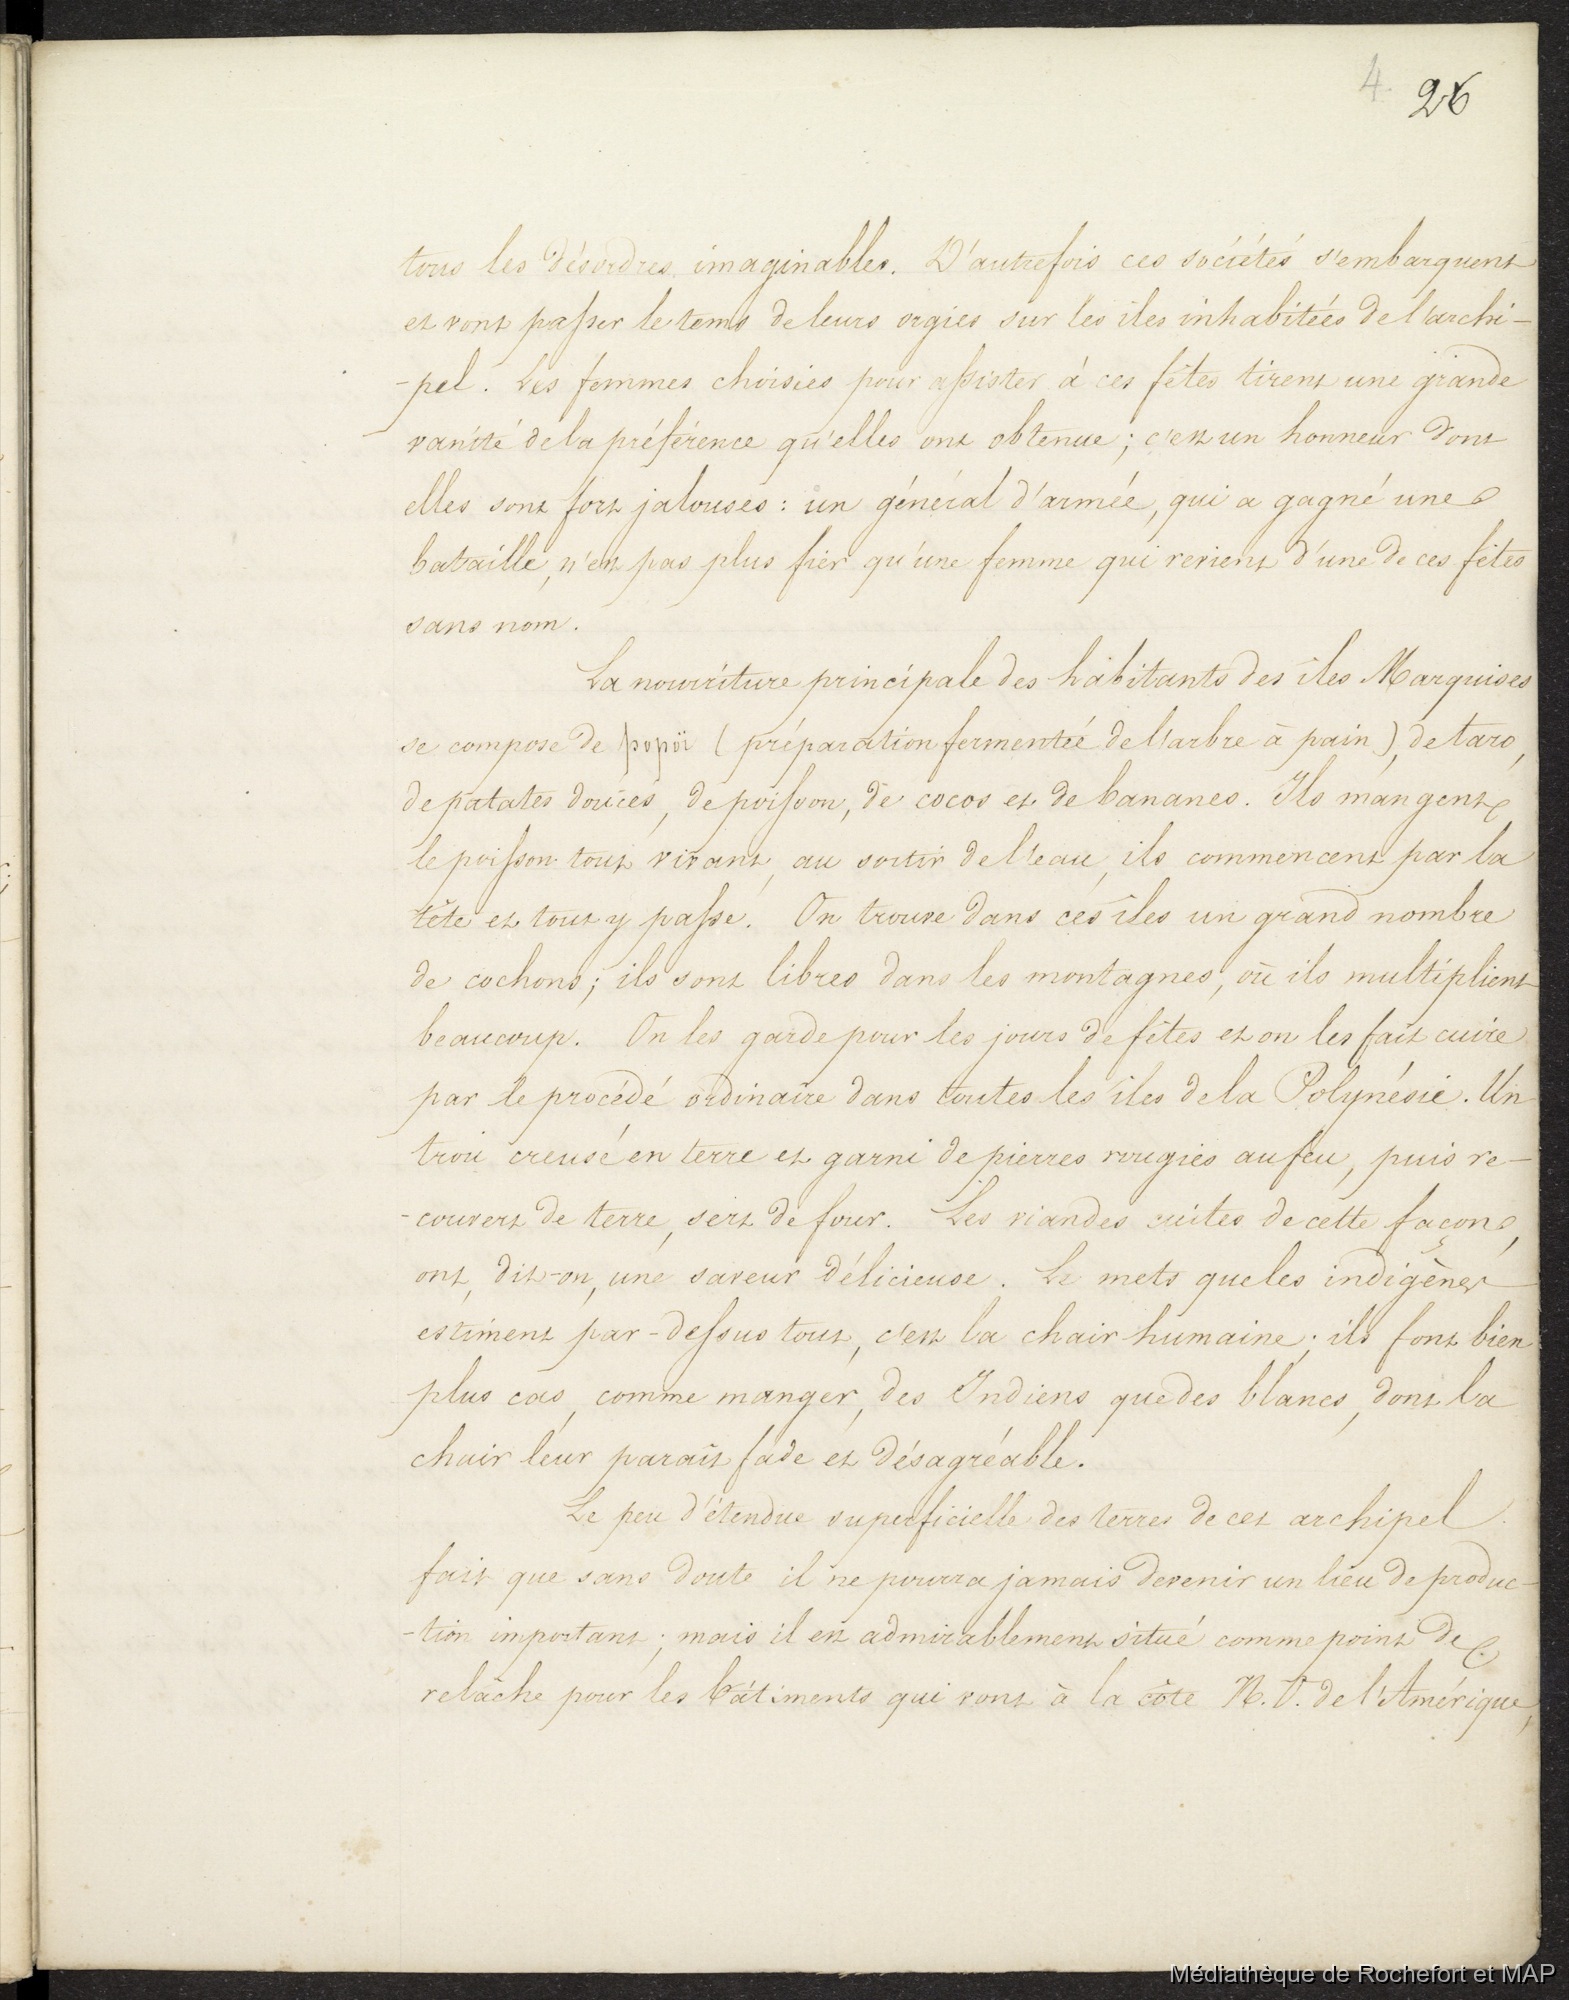 4 26
tous les désordres imaginables. D'autrefois ces sociétés s'embarquent
et vont passer le tems de leurs orgies sur les îles inhabitées de l'archi-
-pel. Les femmes choisies pour assister à ces fêtes tirent une grande
vanité de la préférence qu'elles ont obtenue ; c'est un honneur dont
elles sont fort jalouses : un général d'armée, qui a gagné une
bataille, n'est pas plus fier qu'une femme qui revient d'une de ces fêtes
sans nom.
La nourriture principale des habitants des îles Marquises
se compose de popoï (préparation fermentée de l'arbre à pain), de taro,
de patates douces, de poisson, de cocos et de bananes. Ils mangent
le poisson tout vivant, au sortir de l'eau, ils commencent par la
tête et tout y passe. On trouve dans ces îles un grand nombre
de cochons ; ils sont libres dans les montagnes, où ils multiplient
beaucoup. On les garde pour les jours de fêtes et on les fait cuire
par le procédé ordinaire dans toutes les îles de la Polynésie. Un
trou creusé en terre et garni de pierres rougies au feu, puis re-
-couvert de terre, sert de four. Les viandes cuites de cette façon,
ont, dit-on, une saveur délicieuse. Le mets que les indigènes
estiment par-dessus tout, c'est la chair humaine ; ils font bien
plus cas, comme manger, des Indiens que des blancs, dont la
chair leur paraît fade et désagréable.
Le peu d'étendue superficielle des terres de cet archipel
fait que sans doute il ne pourra jamais devenir un lieu de produc-
-tion important ; mais il est admirablement situé comme point de
relâche pour les bâtiments qui vont à la côte N. O. de l'Amérique,
Médiathèque de Rochefort et MAP